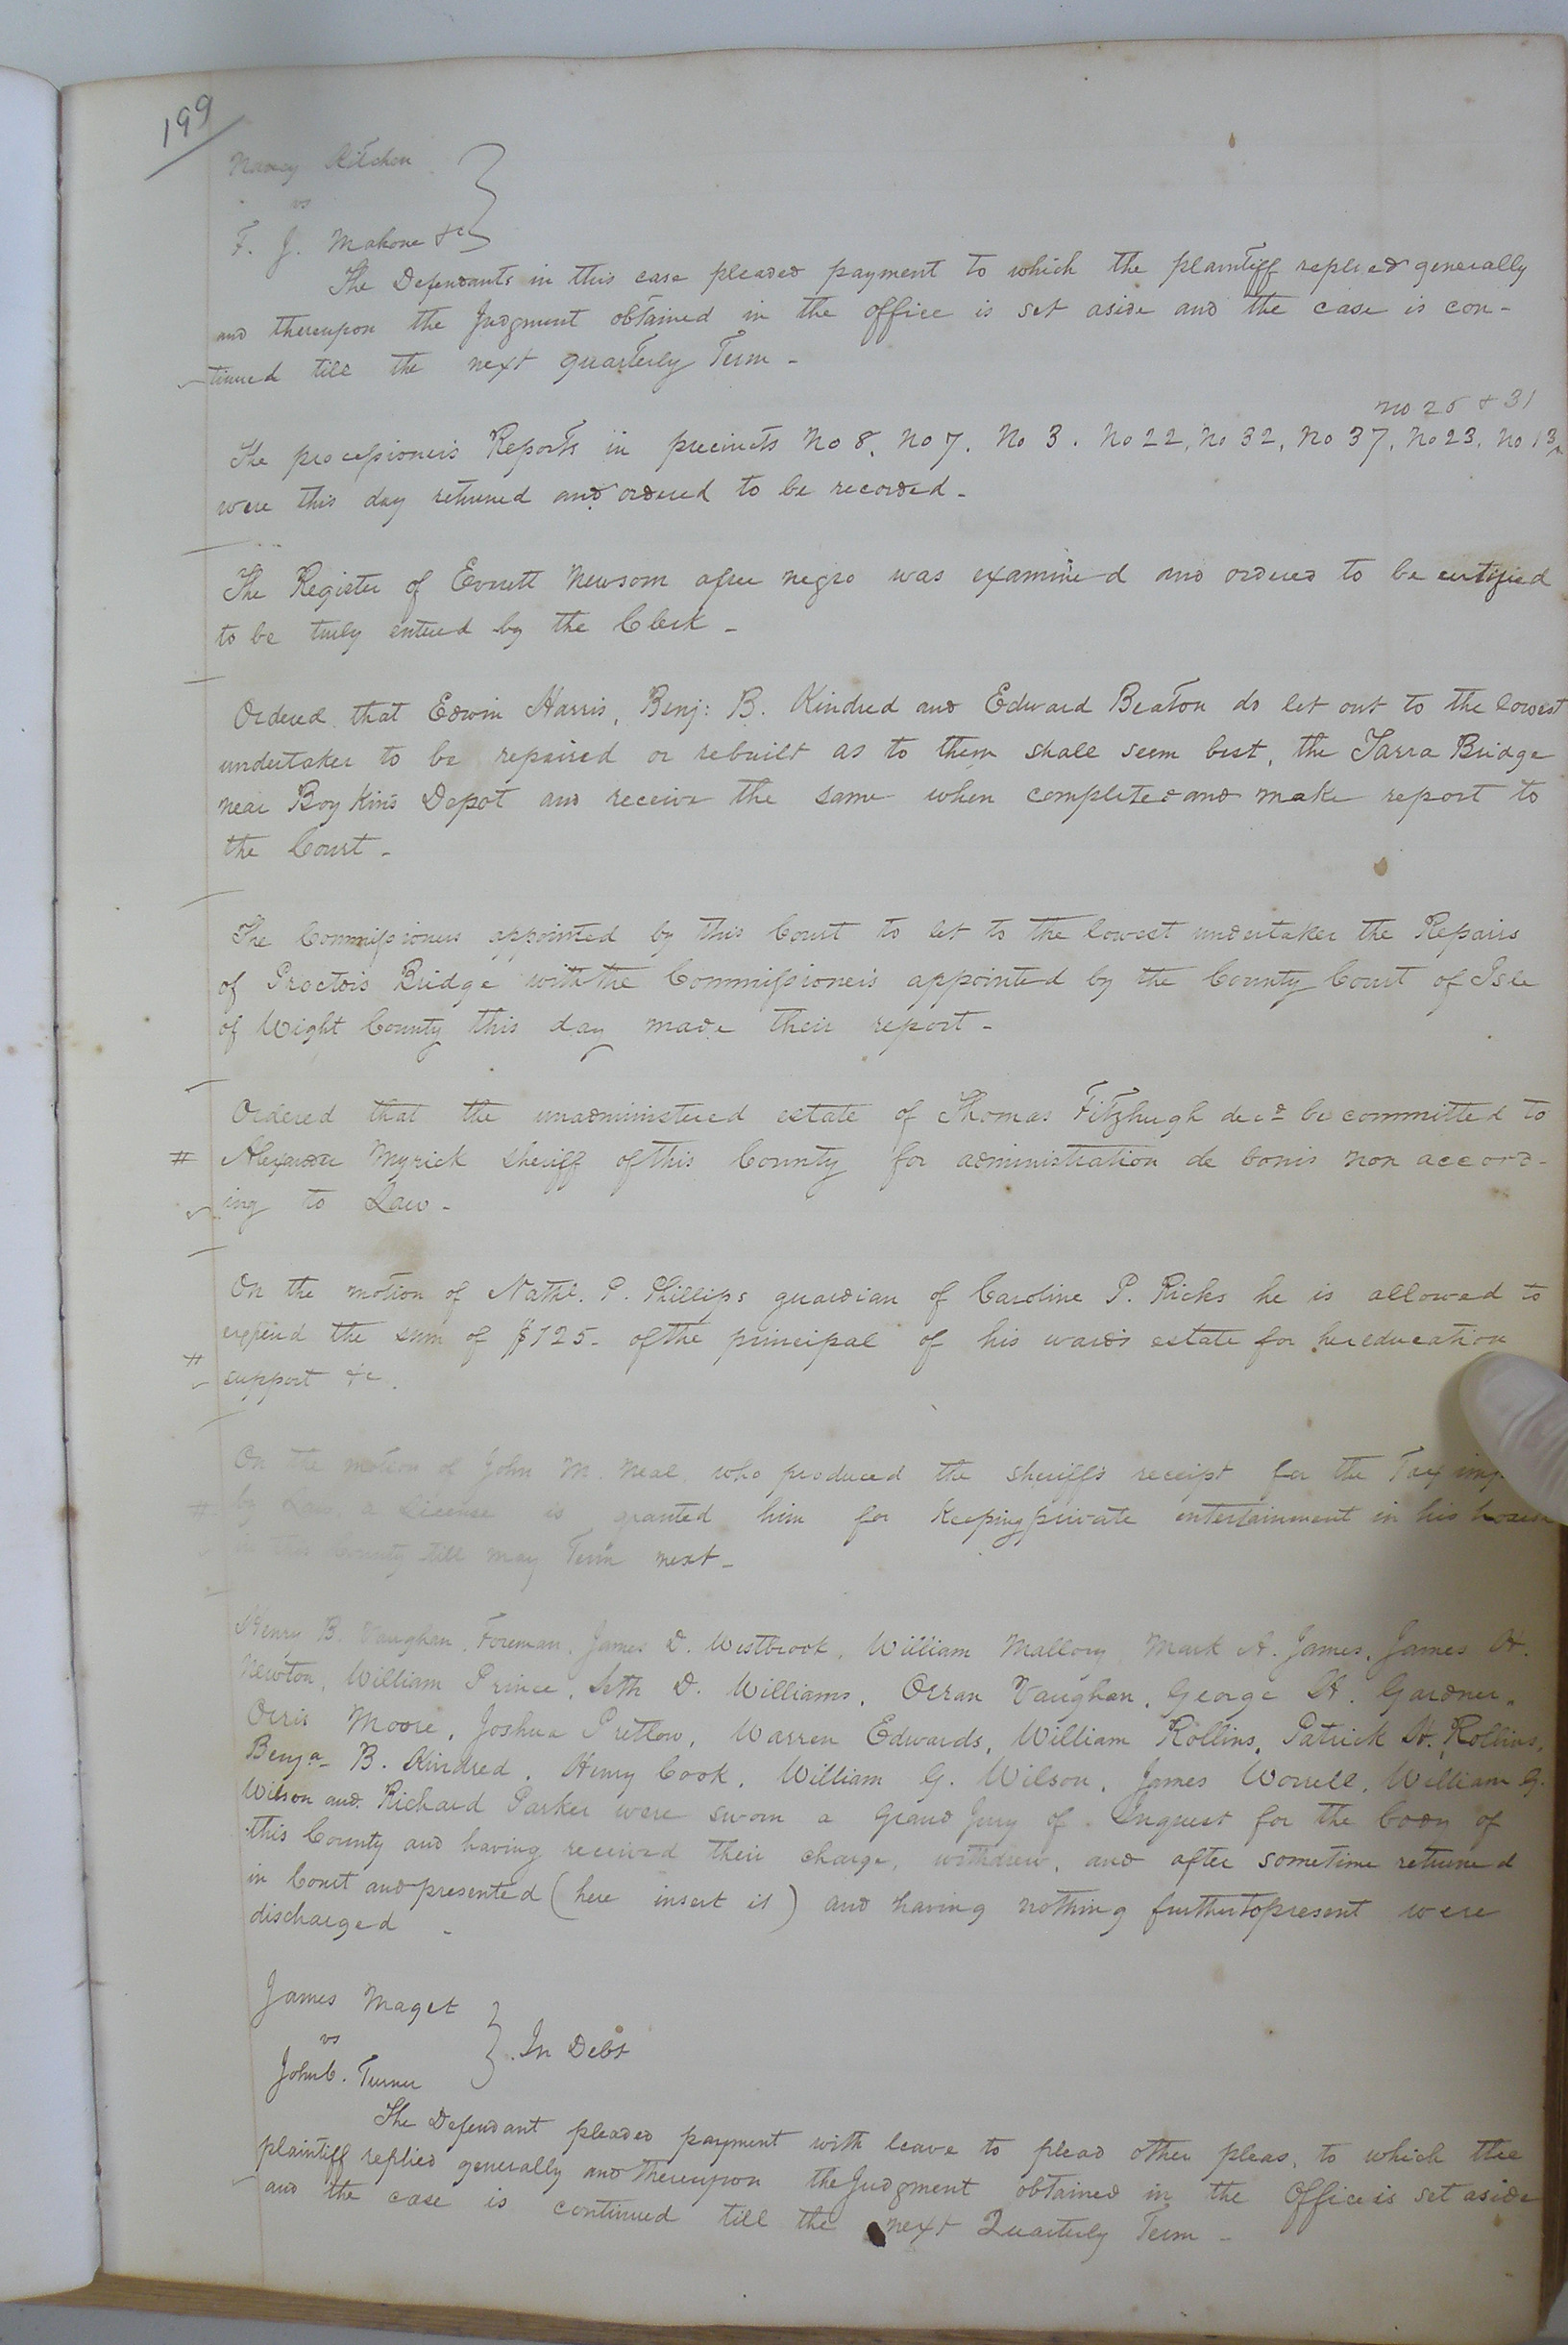 199
Nancy Kitchen
vs
F. J. Mahone &c
The Defendants in this case pleaded payment to which the plaintiff replied generally
and thereupon the Judgment obtained in the office is set aside and the case is con-
tinued till the next quarterly Term -
no 25 & 31
The processioners Reports in precincts No 8, No 7. No 3. No 22, No 32, No 37, No 23, No 13^
were this day returned and ordered to be recorded -
The Register of Everett Newsom a free negro was examined and ordered to be certified
to be truly entered by the Clerk -
Ordered that Edwin Harris, Benj: B. Kindred and Edward Beaton do let out to the lowest
undertaker to be repaired or rebuilt as to them shall seem best, the Tarra Bridge
near Boykins Depot and receive the same when completed and make report to
the Court -
The Commissioners appointed by this Court to let to the lowest undertaker the Repairs
of Proctors Bridge with the Commissioners appointed by the County Court of Isle
of Wight County this day made their report -
Ordered that the unadministered estate of Thomas Fitzhugh decd be committed to
# Alexander Myrick sheriff of this County for administration de bonis non accord-
ing to Law -
On the motion of Nathl. P. Phillips guardian of Caroline P. Ricks he is allowed to
expend the sum of $125 - of the principal of his wards estate for her education
# support &c.
On the motion of John M. Neal, who produced the sheriffs receipt for the Tax
# by Law a License is granted him for Keeping private entertainment in his house
in this County till may Term next -
Henry B. Vaughan, Foreman, James D. Westbrook, William Mallory, Mark A. James, James H.
Newton, William Prince, Seth D. Williams, Orran Vaughan, George H. Gardner,
Orris Moore, Joshua Pretlow, Warren Edwards, William Rollins, Patrick H. Rollins,
Benja. B. Kindred, Henry Cook, William G. Wilson, James Worrell, William G.
Wilson and Richard Parker were sworn a Grand Jury of Inquest for the body of
this County and having received their charge, withdrew, and after sometime returned
in Court and presented (here insert it) and having nothing further to present were
discharged -
James Maget
vs
In Debt
John C. Turner
The Defendant pleaded payment with leave to plead other pleas, to which the
plaintiff replied generally and thereupon the Judgment obtained in the Office is set aside
and the case is continued till the next Quarterly Term -